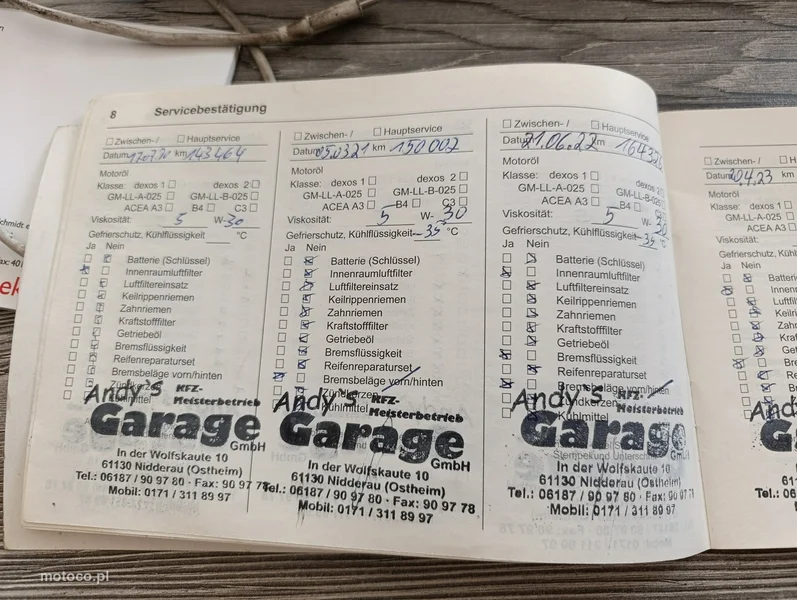 8 Servicebestätigung
Zwischen-/ Hauptservice
Datum km 143464
Motoröl
Klasse: dexos 1 dexos 2
GM-LL-A-025 GM-LL-B-025
ACEA A3 B4 C3
Viskosität: 5 W-30
Gefrierschutz, Kühlflüssigkeit °C
Ja Nein
Batterie (Schlüssel)
Innenraumluftfilter
Luftfiltereinsatz
Keilrippenriemen
Zahnriemen
Kraftstofffilter
Getriebeöl
Bremsflüssigkeit
Reifenreparaturset
Bremsbeläge vorn/hinten
Zündkerzen
Kühlmittel
Andy's KFZ-
Meisterbetrieb
Garage
GmbH
In der Wolfskaute 10
61130 Nidderau (Ostheim)
Tel.: 06187 / 90 97 80 · Fax: 90 97 78
Mobil: 0171 / 311 89 97
Zwischen-/ Hauptservice
Datum 05.03.21 km 150007
Motoröl
Klasse: dexos 1 dexos 2
GM-LL-A-025 GM-LL-B-025
ACEA A3 B4 C3
Viskosität: 5 W-30
Gefrierschutz, Kühlflüssigkeit -35 °C
Ja Nein
Batterie (Schlüssel)
Innenraumluftfilter
Luftfiltereinsatz
Keilrippenriemen
Zahnriemen
Kraftstofffilter
Getriebeöl
Bremsflüssigkeit
Reifenreparaturset
Bremsbeläge vorn/hinten
Zündkerzen
Kühlmittel
Andy's KFZ-
Meisterbetrieb
Garage
GmbH
In der Wolfskaute 10
61130 Nidderau (Ostheim)
Tel.: 06187 / 90 97 80 · Fax: 90 97 78
Mobil: 0171 / 311 89 97
Zwischen-/ Hauptservice
Datum 21.06.22 km
Motoröl
Klasse: dexos 1 dexos 2
GM-LL-A-025 GM-LL-B-025
ACEA A3 B4
Viskosität: 5 W-30
Gefrierschutz, Kühlflüssigkeit -35 °C
Ja Nein
Batterie (Schlüssel)
Innenraumluftfilter
Luftfiltereinsatz
Keilrippenriemen
Zahnriemen
Kraftstofffilter
Getriebeöl
Bremsflüssigkeit
Reifenreparaturset
Bremsbeläge vorn/hinten
Zündkerzen
Kühlmittel
Andy's KFZ-
Meisterbetrieb
Garage
Stempelkund Unterschrift
In der Wolfskaute 10
61130 Nidderau (Ostheim)
Tel.: 06187 / 90 97 80 · Fax: 90 97 78
Mobil: 0171 / 311 89 97
Zwischen-/ H
Datum 20.4.23 km
Motoröl
Klasse: dexos 1
GM-LL-A-025
ACEA A3
Viskosität:
Gefrierschutz, Kühl
Ja Nein
Batt
Innen
Luftf
Keilri
Zahn
Kraft
Getr
Bre
Re
Andy
Ga
In
6113
Tel.: 06
Mo
motoco.pl